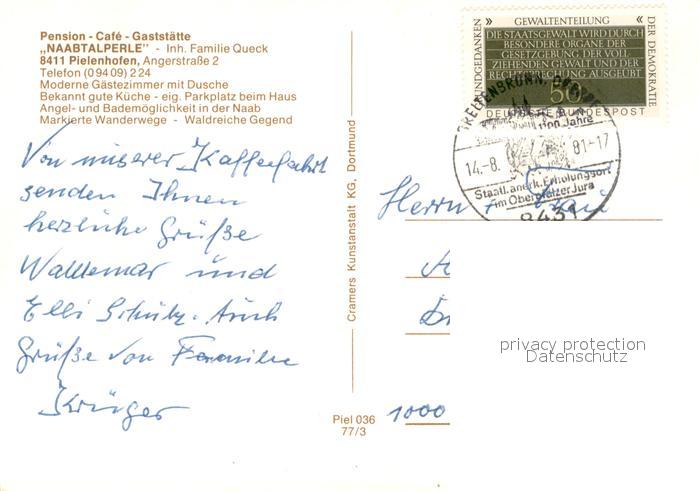 Pension - Café - Gaststätte
„NAABTALPERLE" - Inh. Familie Queck
8411 Pielenhofen, Angerstraße 2
Telefon (0 94 09) 2 24
Moderne Gästezimmer mit Dusche
Bekannt gute Küche - eig. Parkplatz beim Haus
Angel- und Bademöglichkeit in der Naab
Markierte Wanderwege - Waldreiche Gegend
Von unserer Kaffeefahrt
senden Ihnen
herzliche Grüße
Waldemar und
Elli Schulz. Auch
Grüße von Familie
Krüger
Cramers Kunstanstalt KG, Dortmund
Piel 036
77/3
» GEWALTENTEILUNG «
GRUNDGEDANKEN
DER DEMOKRATIE
DIE STAATSGEWALT WIRD DURCH
BESONDERE ORGANE DER
GESETZGEBUNG, DER VOLL
ZIEHENDEN GEWALT UND DER
RECHTSPRECHUNG AUSGEÜBT
50
DEUTSCHE BUNDESPOST
1100 Jahre
14.-8. 81-17
Staatl. anerk. Erholungsort
im Oberpfälzer Jura
8431
Herrn
1000
privacy protection
Datenschutz